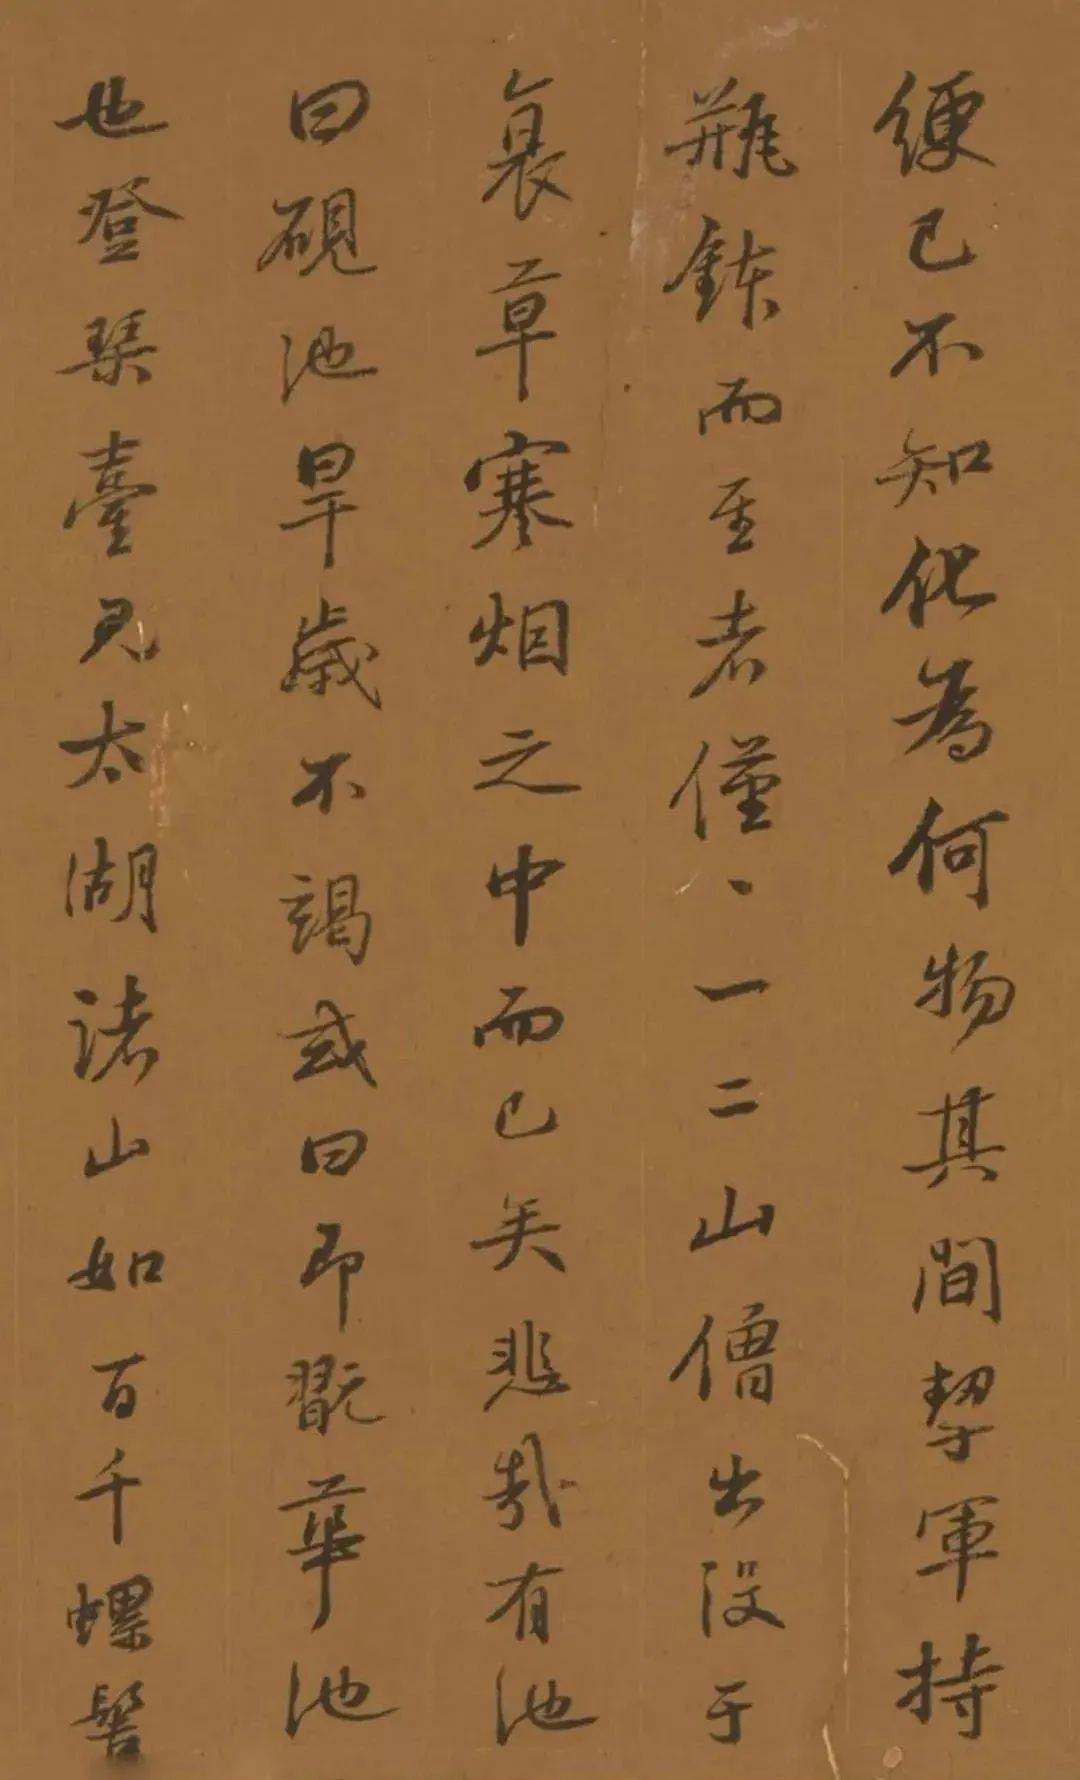 便已不知化為何物其間挈軍持
瓶鉢而至者僅僅一二山僧出没于
衰草寒烟之中而已矣悲哉有池
曰硯池旱歲不竭或曰即翫華池
也登琴臺見太湖諸山如百千螺髻